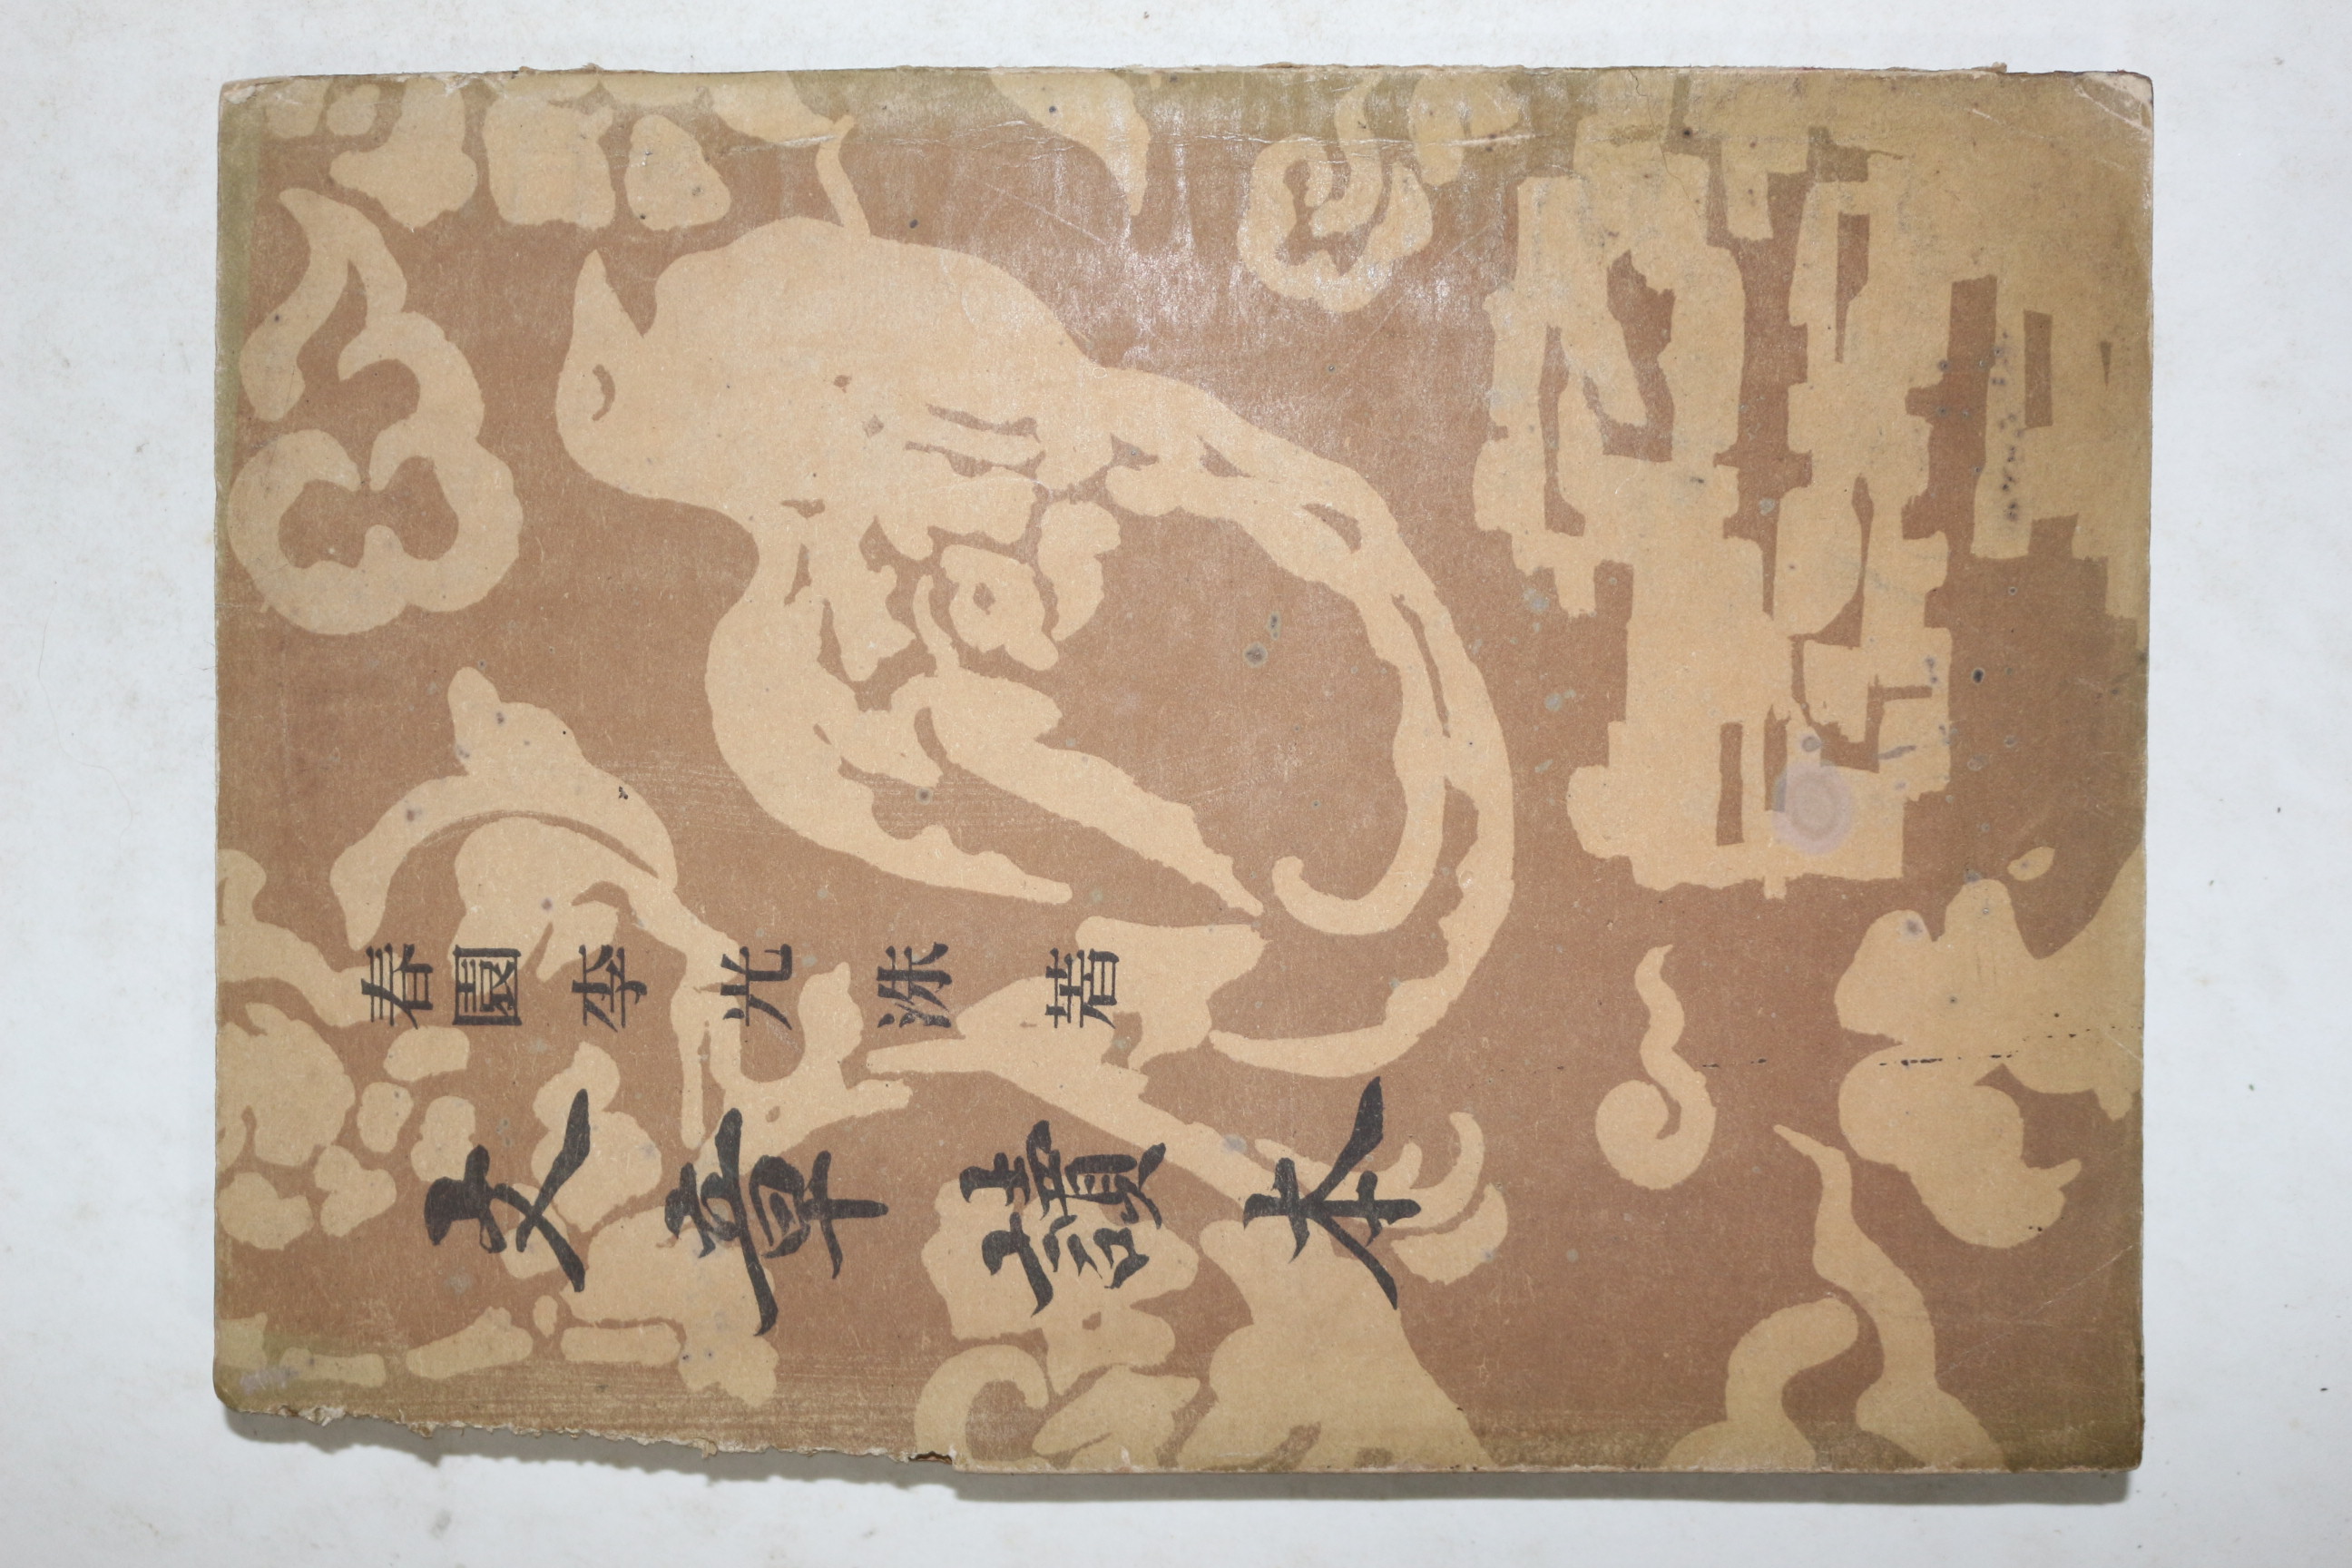 文章讀本
春園 李光洙 著